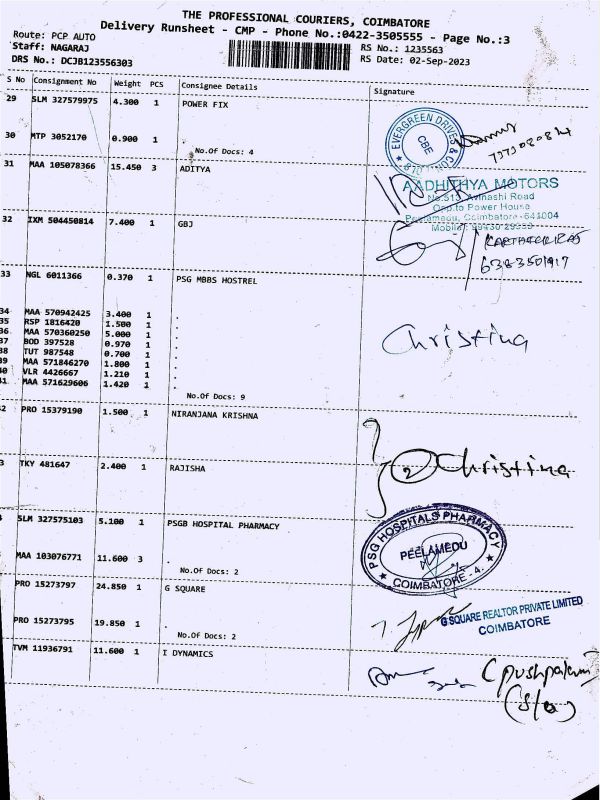 THE PROFESSIONAL COURIERS, COIMBATORE
Delivery Runsheet - CMP - Phone No.:0422-3505555 - Page No.:3
Route: PCP AUTO
Staff: NAGARAJ
DRS No.: DCJB123556303
RS No.: 1235563
RS Date: 02-Sep-2023
S No Consignment No Weight PCS Consignee Details Signature
29 SLM 327579975 4.300 1 POWER FIX
30 MTP 3052170 0.900 1 .
No.Of Docs: 4
EVERGREEN DRIVES & CO
CBE
31 MAA 105078366 15.450 3 ADITYA
AADHITHYA MOTORS
No.513, Avinashi Road
Opp to Power House
Peelamedu, Coimbatore-641004
32 IXM 504450814 7.400 1 GBJ
6383501917
33 NGL 6011366 0.370 1 PSG MBBS HOSTREL
34 MAA 570942425 3.400 1 .
35 RSP 1816420 1.500 1 .
36 MAA 570360250 5.000 1 .
37 BOD 397528 0.970 1 .
38 TUT 987548 0.700 1 .
39 MAA 571846270 1.800 1 .
40 VLR 4426667 1.210 1 .
41 MAA 571629606 1.420 1 .
No.Of Docs: 9
Christina
2 PRO 15379190 1.500 1 NIRANJANA KRISHNA
3 TKY 481647 2.400 1 RAJISHA
Christina
SLM 327575103 5.100 1 PSGB HOSPITAL PHARMACY
MAA 103076771 11.600 3 .
No.Of Docs: 2
PSG HOSPITALS PHARMACY
PEELAMEDU
COIMBATORE - 4.
PRO 15273797 24.850 1 G SQUARE
PRO 15273795 19.850 1 .
No.Of Docs: 2
G SQUARE REALTOR PRIVATE LIMITED
COIMBATORE
TVM 11936791 11.600 1 I DYNAMICS